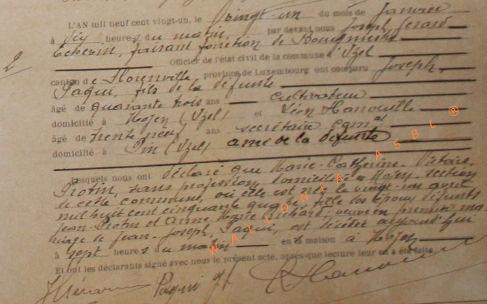 L'AN mil neuf cent vingt-un, le vingt-un du mois de Janvier
à dix heures du matin, par devant nous Joseph Gérard
Echevin, faisant fonction de Bourgmestre
Officier de l'état civil de la commune d'Izel
canton de Florenville, province de Luxembourg ont comparu Joseph
Paquin, fils de la défunte
âgé de quarante trois ans cultivateur
domicilié à Moyen (Izel) et Léon Hanouille
âgé de trente neuf ans secrétaire comal
domicilié à Pin (Izel) ami de la défunte
Lesquels nous ont déclaré que Marie-Catherine Victoire
sans profession, domiciliée à Moyen section
de cette commune, où elle est née le vingt-un avril
mil huit cent cinquante quatre, fille des époux défunts
Jean et Anne Marie veuve en premier ma
riage de Jean-Joseph Paquin, est décédée aujourd'hui
à sept heures du matin en sa maison à Moyen
Et ont les déclarants signé avec nous le présent acte, après que lecture leur en a été faite.
JGérard Paquin